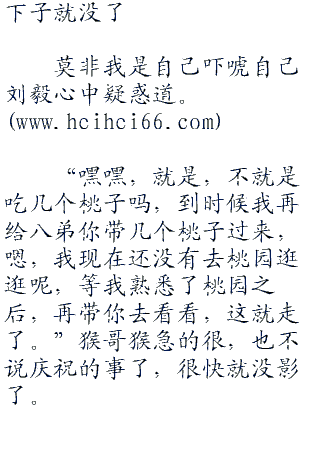 下子就没了
莫非我是自己吓唬自己
刘毅心中疑惑道。
(www.hcihci66.com)
“嘿嘿，就是，不就是
吃几个桃子吗，到时候我再
给八弟你带几个桃子过来，
嗯，我现在还没有去桃园逛
逛呢，等我熟悉了桃园之
后，再带你去看看，这就走
了。”猴哥猴急的很，也不
说庆祝的事了，很快就没影
了。